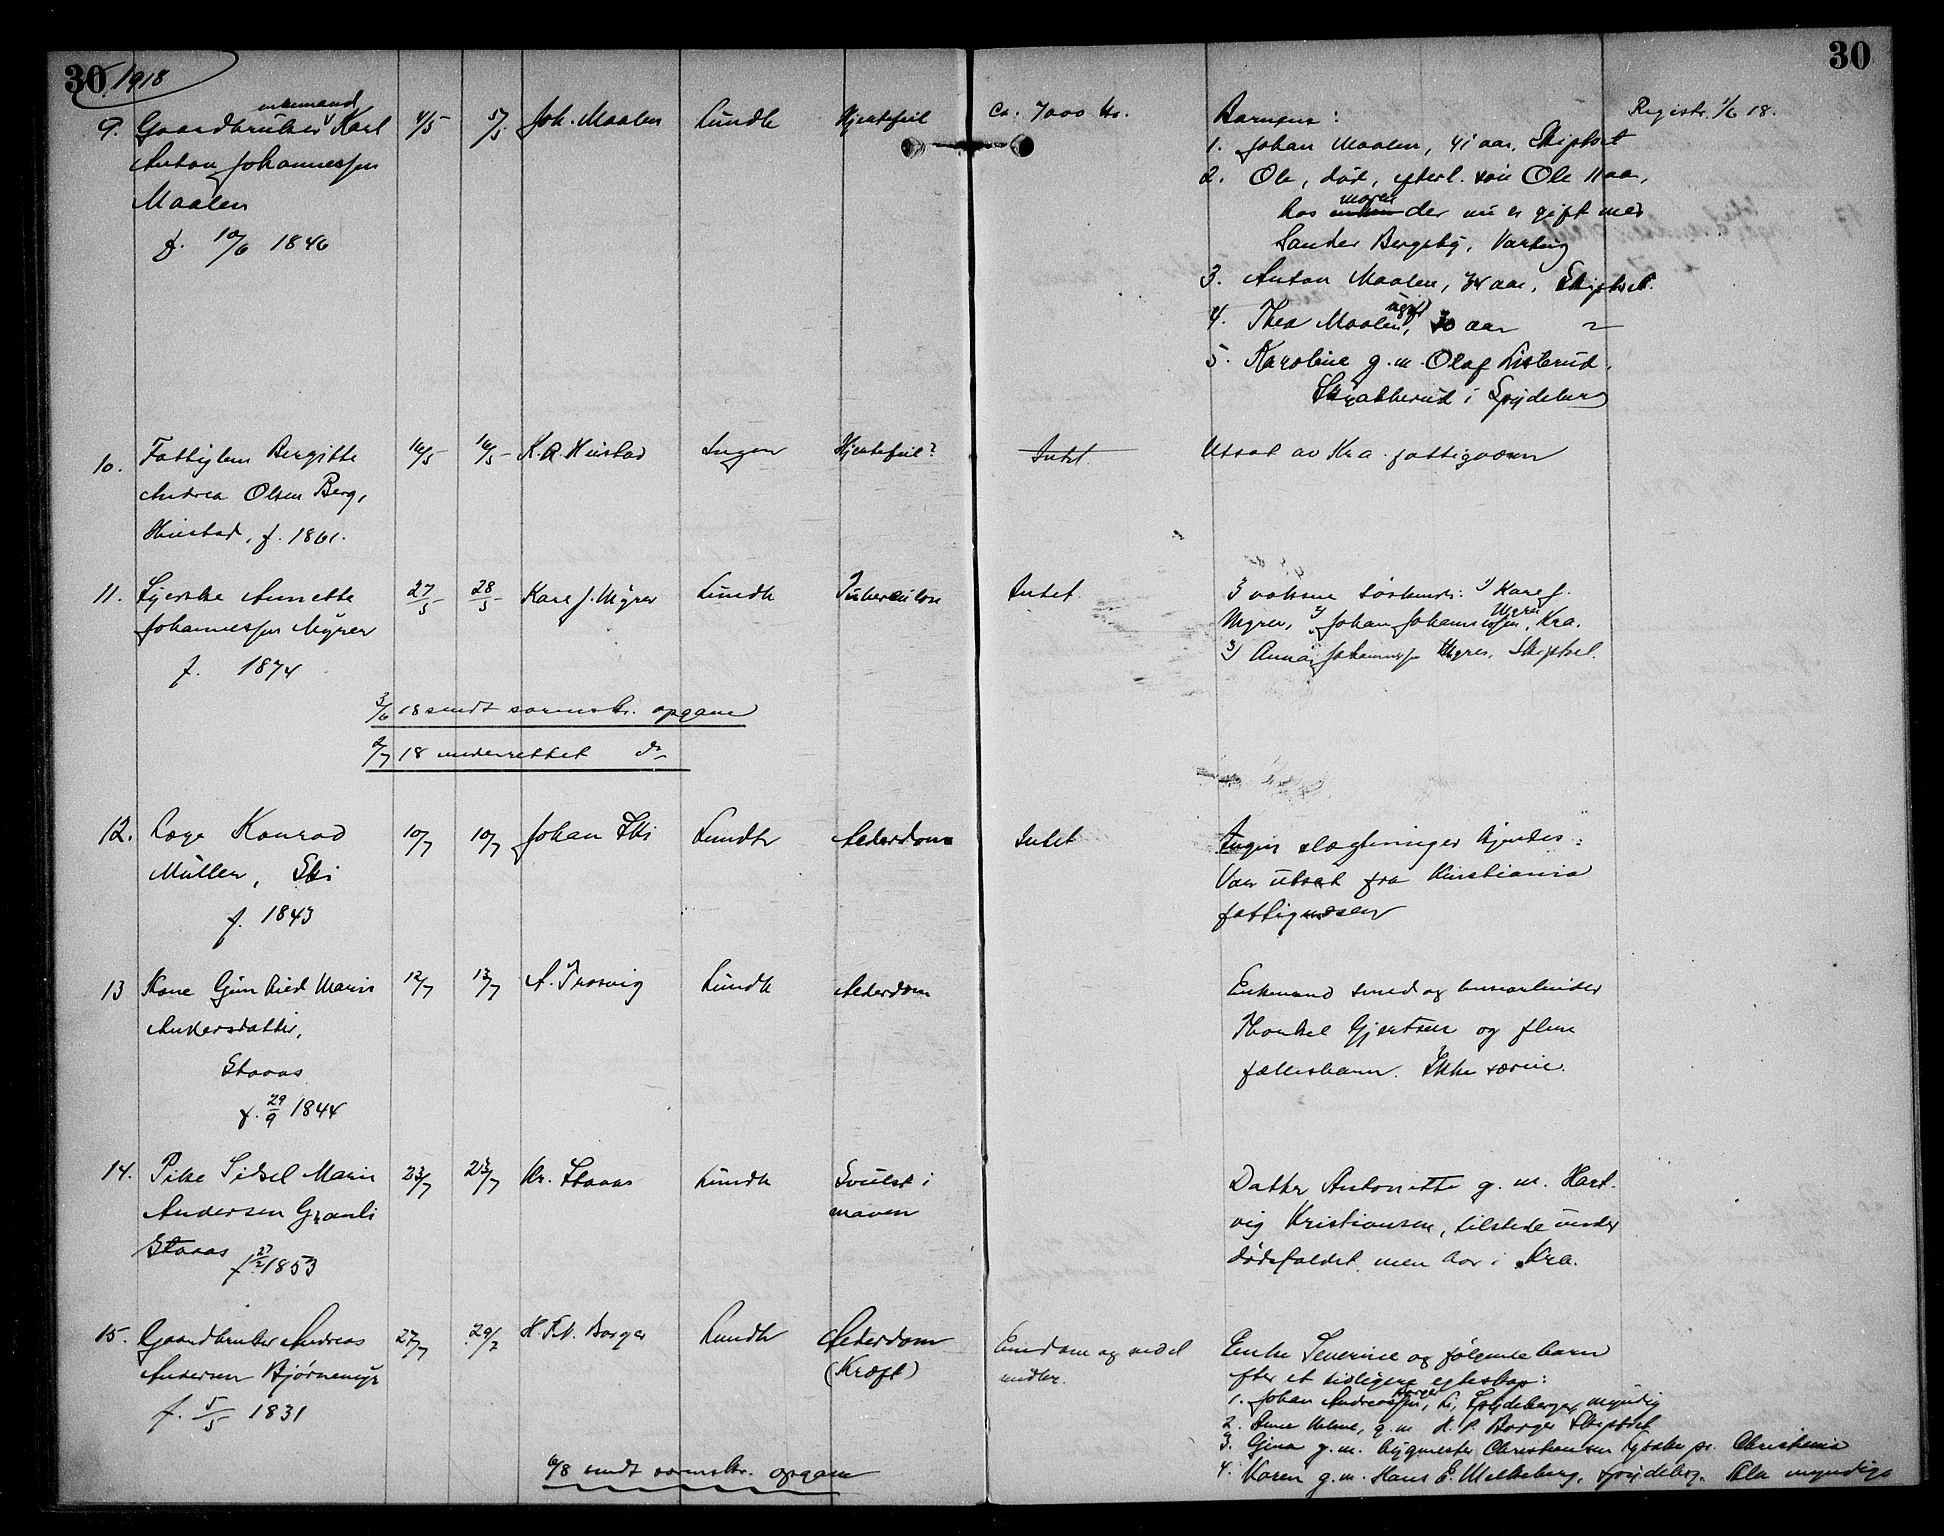 30
1918
30
9. Gaardbruker Karl
enkemand
4/5
5/5
Joh. Maalen
Lundh
Hjertefeil
ca. 7000 kr.
Anton Johannessen
Maalen
f. 10/6 1846
Barnene:
1. Johan Maalen, 41 aar, Skiptvet
2. Ole, død, efterl. søn Ole 11 aar,
hos moren der nu er gift med
Sander Bergsby, Varteig
3. Anton Maalen, 34 aar, Skiptvet.
4. Thea Maalen, ugift, 30 aar "
5. Karoline g.m. Olaf Listerud,
Skrakkerud i Spydeberg
Registr. 1/6 18.
10. Fattiglem Bergitte
16/5
16/5
K. A. Hustad
Ingen
Hjertefeil?
Intet.
Utsat av Kra. fattigvæsen
Andrea Olsen Berg,
Hustad, f. 1861.
11. Syerske Annette
27/5
28/5
Karl J. Myrer
Lundh
Tuberkulose
Intet.
Johannessen Myrer
f. 1874
3 voksne søskende: 1) Karl J.
Myrer, 2) Johan Johannessen Myrer, Kra.
3) Anna Johannessen Myrer, Skiptvet.
3/6 18 sendt sorenskr. opgave
2/7 18 underrettet do
12. Læge Konrad
10/7
10/7
Johan Ski
Lundh
Alderdom
Intet
Müller, Ski
f. 1843
Ingen slægtninger kjendes.
Var utsat fra Kristiania
fattigvæsen
13 Kone Gunhild Marie
12/7
13/7
A. Trosvig
Lundh
Alderdom
Andersdatter,
Staaas
f. 29/9 1844
Enkemand smed og husarbeider
Thorkel Gjertsen og flere
fællesbarn. Ikke særeie.
14. Pike Sidsel Marie
23/7
23/7
Kr. Staaas
Lundh
Svulst i
maven
Andersen Granli
Staaas f. 27/2 1853
Datter Antonette g. m. Hart-
vig Kristiansen, tilstede under
dødsfaldet men bor i Kra.
15. Gaardbruker Andreas
27/7
29/7
H. P. Borger
Lundh
Alderdom
(Kræft)
Eiendom og endel
midler.
Andersen Bjørnemyr
f. 5/5 1831
Enke Severine og følgende barn
efter et tidligere egteskap:
1. Johan Andreassen, Li, Spydeberg, myndig
2. Anne Helene, g.m. H. P. Borger Skiptvet
3. Gina g.m. bygmester Christiansen Christiania
4. Karen g.m. Hans E. Melleberg, Spydeberg. Alle myndige
6/8 sendt sorenskr. opgave